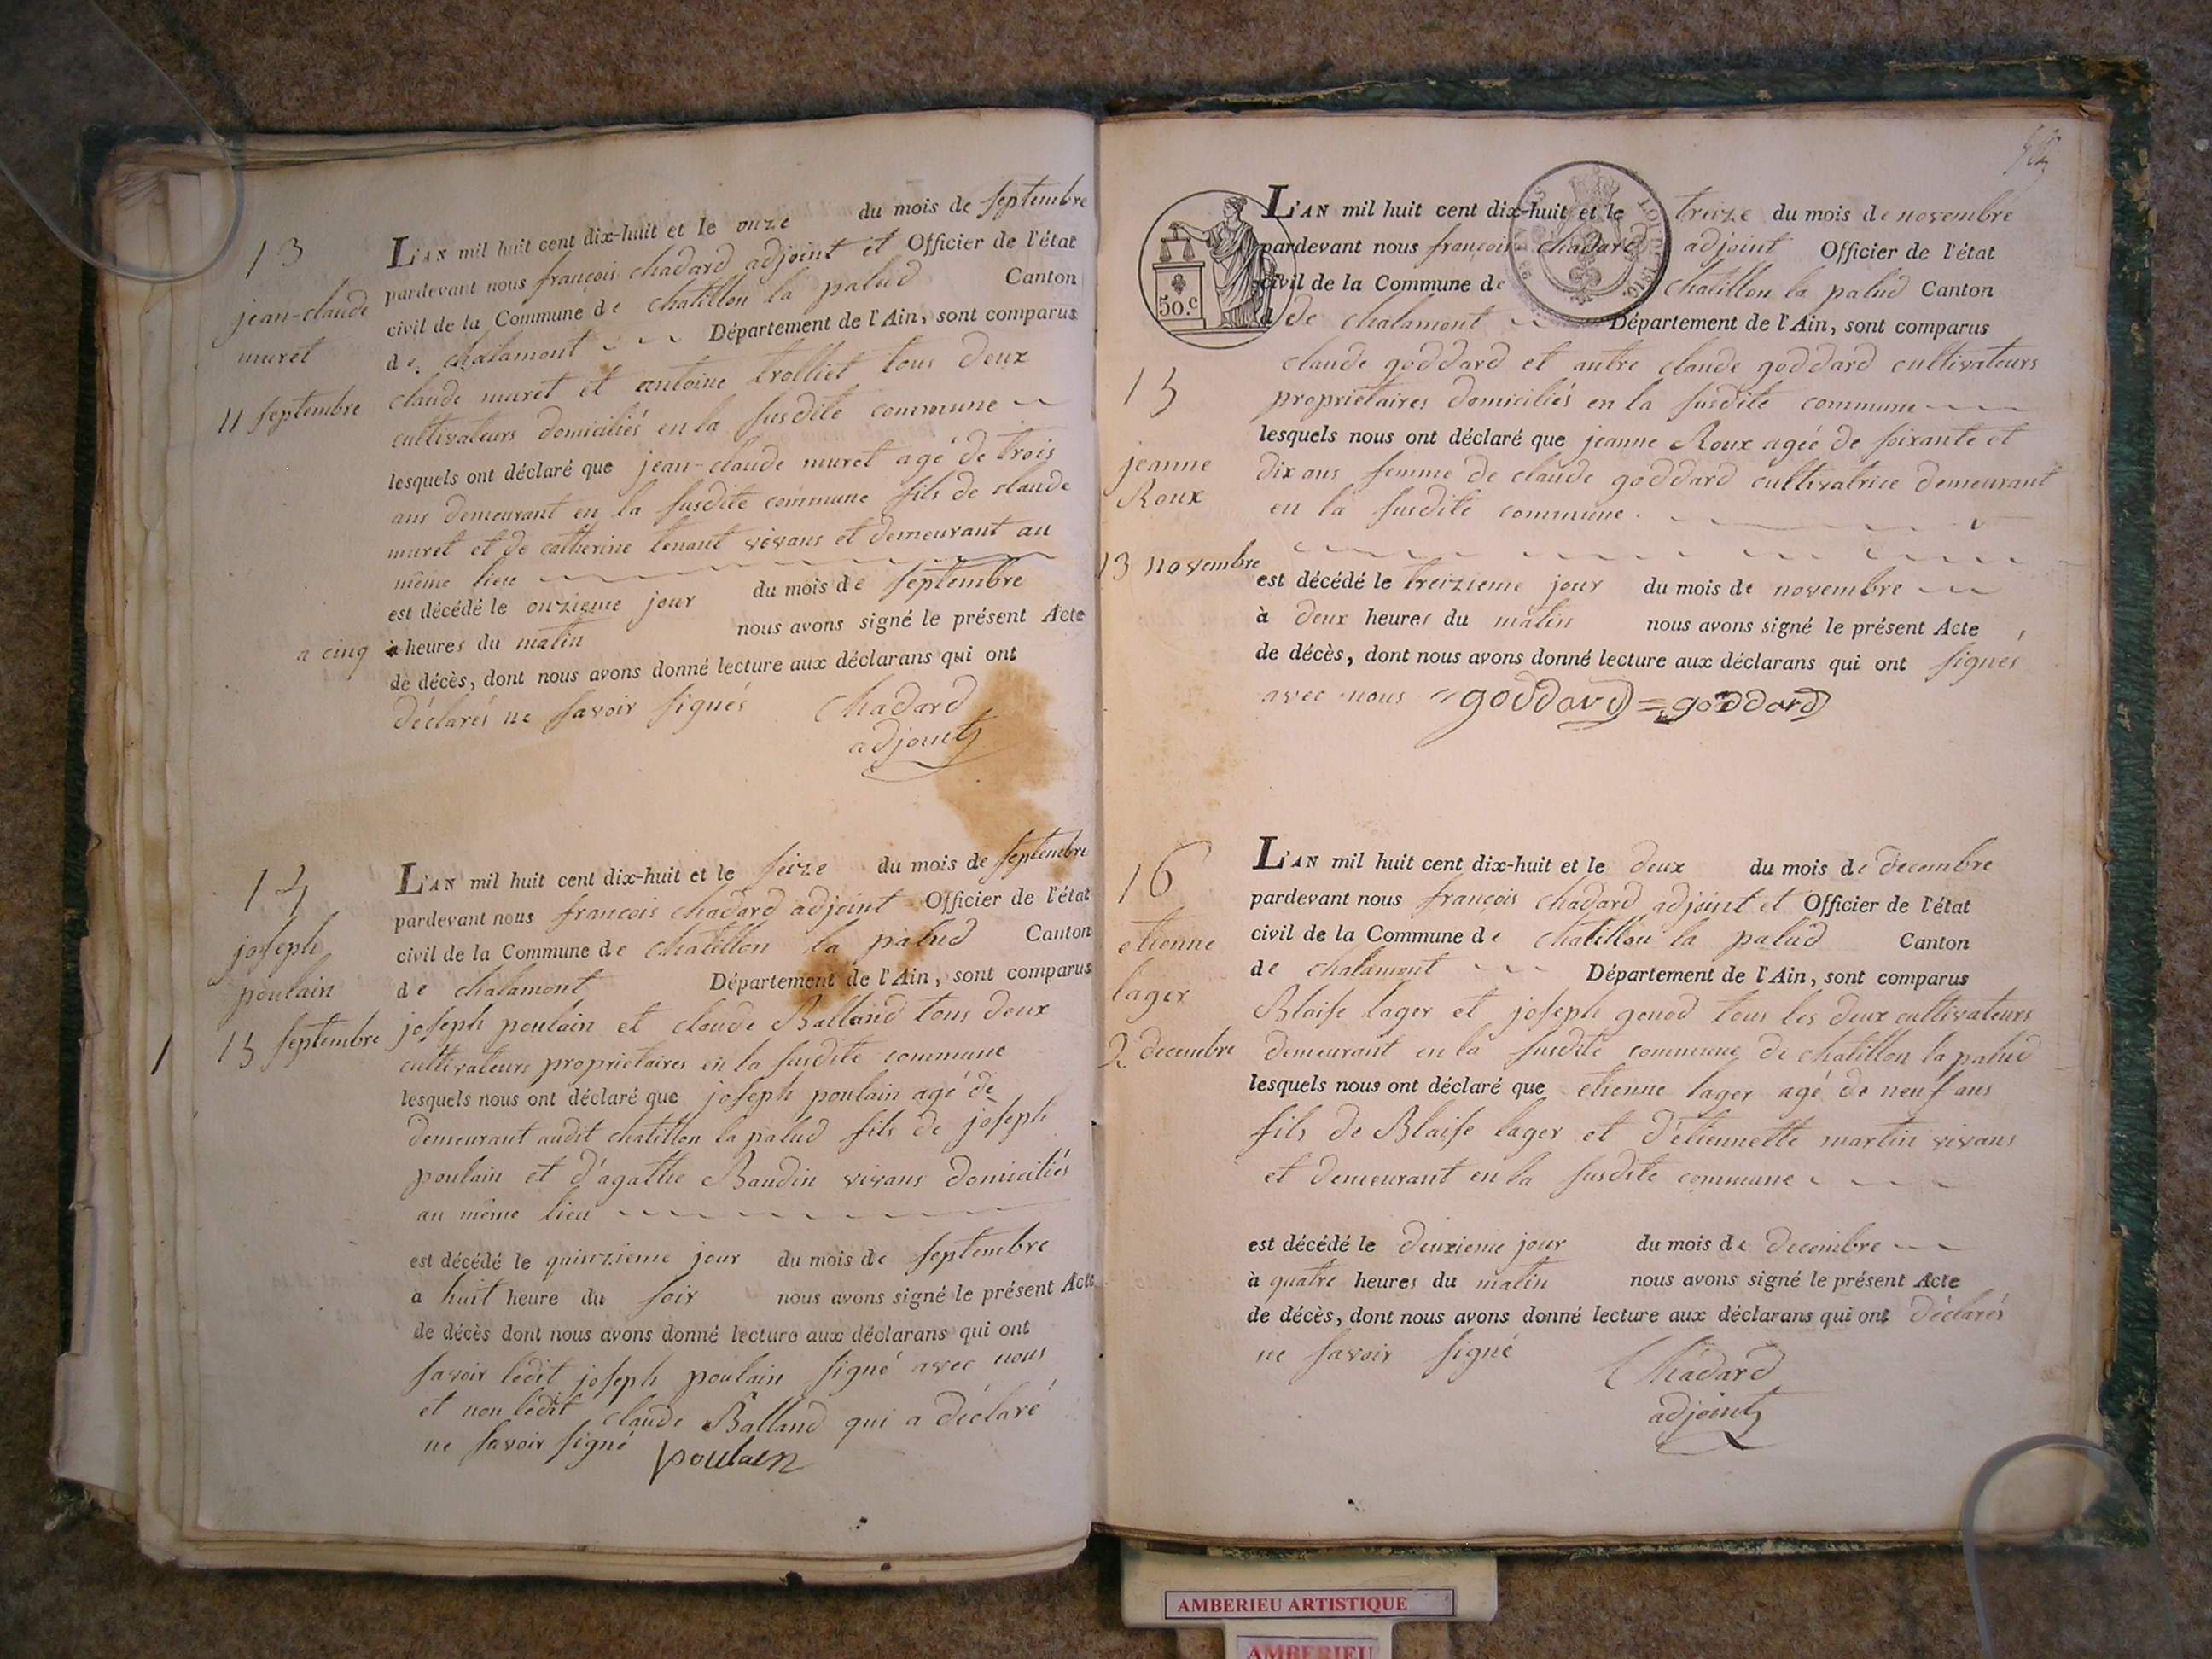 13
jean-claude
muret
11 septembre
L'AN mil huit cent dix-huit et le onze du mois de septembre
pardevant nous françois chadard adjoint et Officier de l'état
civil de la Commune de chatillon la palud Canton
de chalamont Département de l'Ain, sont comparus
claude muret et antoine trolliet tous deux
cultivateurs domiciliés en la susdite commune
lesquels ont déclaré que jean-claude muret agé de trois
ans demeurant en la susdite commune fils de claude
muret et de catherine tenant vivans et demeurant au
même lieu
est décédé le onzieme jour du mois de septembre
a cinq à heures du matin nous avons signé le présent Acte
de décès, dont nous avons donné lecture aux déclarans qui ont
déclarés ne savoir signés Chadard
adjoint
14
joseph
poulain
15 septembre
L'AN mil huit cent dix-huit et le seize du mois de septembre
pardevant nous francois chadard adjoint Officier de l'état
civil de la Commune de chatillon la palud Canton
de chalamont Département de l'Ain, sont comparus
joseph poulain et claude Balland tous deux
cultivateurs proprietaires en la susdite commune
lesquels nous ont déclaré que joseph poulain agé de
demeurant audit chatillon la palud fils de joseph
poulain et d'agathe Baudin vivans domiciliés
au même lieu
est décédé le quinzieme jour du mois de septembre
à huit heure du soir nous avons signé le présent Acte
de décès dont nous avons donné lecture aux déclarans qui ont
savoir ledit joseph poulain signé avec nous
et non ledit claude Balland qui a déclaré
ne savoir signé poulain
L'AN mil huit cent dix-huit et le treize du mois de novembre
pardevant nous françois chadard adjoint Officier de l'état
civil de la Commune de chatillon la palud Canton
50.c
de chalamont Département de l'Ain, sont comparus
15
jeanne
Roux
13 novembre
claude goddard et autre claude goddard cultivateurs
proprietaires domiciliés en la susdite commune
lesquels nous ont déclaré que jeanne Roux agée de soixante et
dix ans femme de claude goddard cultivatrice demeurant
en la susdite commune.
est décédé le treizieme jour du mois de novembre
à deux heures du matin nous avons signé le présent Acte
de décès, dont nous avons donné lecture aux déclarans qui ont signés
avec nous goddard = goddard
16
etienne
lager
2 decembre
L'AN mil huit cent dix-huit et le deux du mois de decembre
pardevant nous françois chadard adjoint et Officier de l'état
civil de la Commune de chatillon la palud Canton
de chalamont Département de l'Ain, sont comparus
Blaise lager et joseph genod tous les deux cultivateurs
demeurant en la susdite commune de chatillon la palud
lesquels nous ont déclaré que etienne lager agé de neuf ans
fils de Blaise lager et d'étiennette martin vivans
et demeurant en la susdite commune
est décédé le deuxieme jour du mois de decembre
à quatre heures du matin nous avons signé le présent Acte
de décès, dont nous avons donné lecture aux déclarans qui ont déclarés
ne savoir signé Chadard
adjoint
AMBERIEU ARTISTIQUE
AMBERIEU